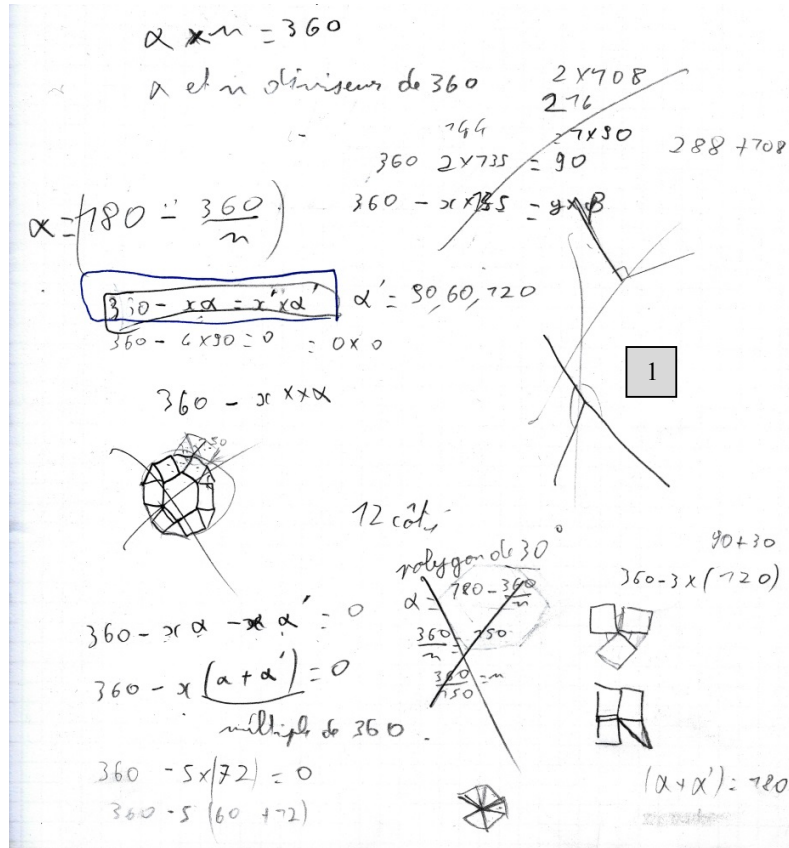 α x n = 360
α et n diviseur de 360
2x108
216
144
= 1x90
288 + 108
360 2x135 = 90
360 - x x 135 = y x β
α = (180 - 360/n)
360 - xα = x'xα'
α' = 90, 60, 120
360 - 4x90 = 0 = 0x0
1
360 - x x x α
150
12 côtés
polygone de 30°
α = 180 - 360/n
360/n = 150
360/150 = n
90+30
360-3x(120)
360 - xα - xα' = 0
360 - x(α + α') = 0
multiple de 360.
360 - 5x(72) = 0
360 - 5(60 + 12)
(α+α') = 180